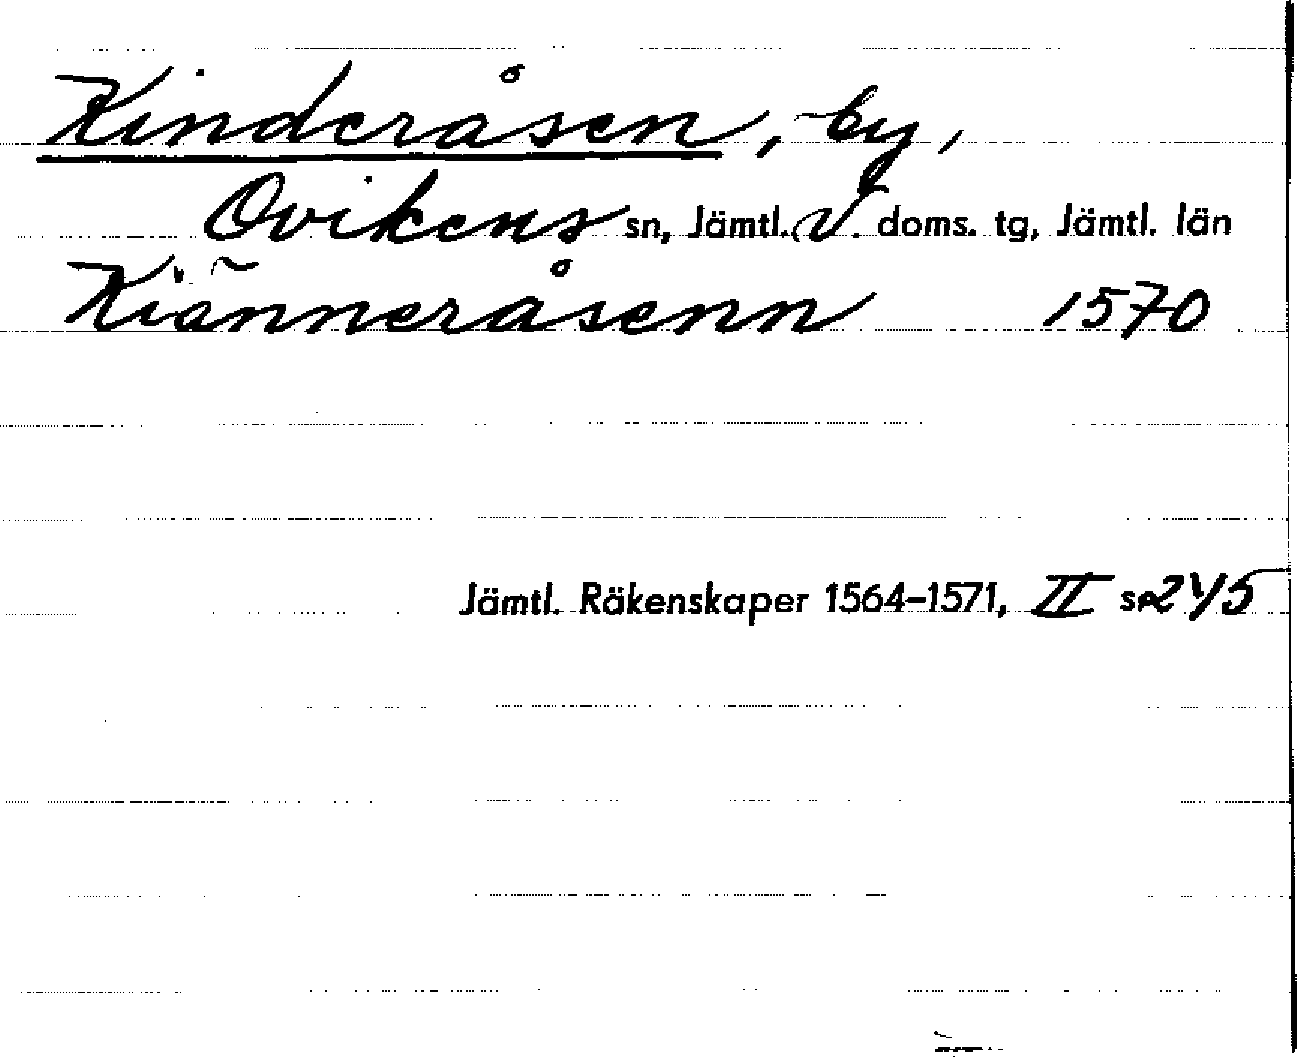 Kinderåsen, by,
Ovikens sn, Jämtl. V. doms. tg, Jämtl. län
Kiänneråsenn 1570
Jämtl. Räkenskaper 1564-1571, II s. 245